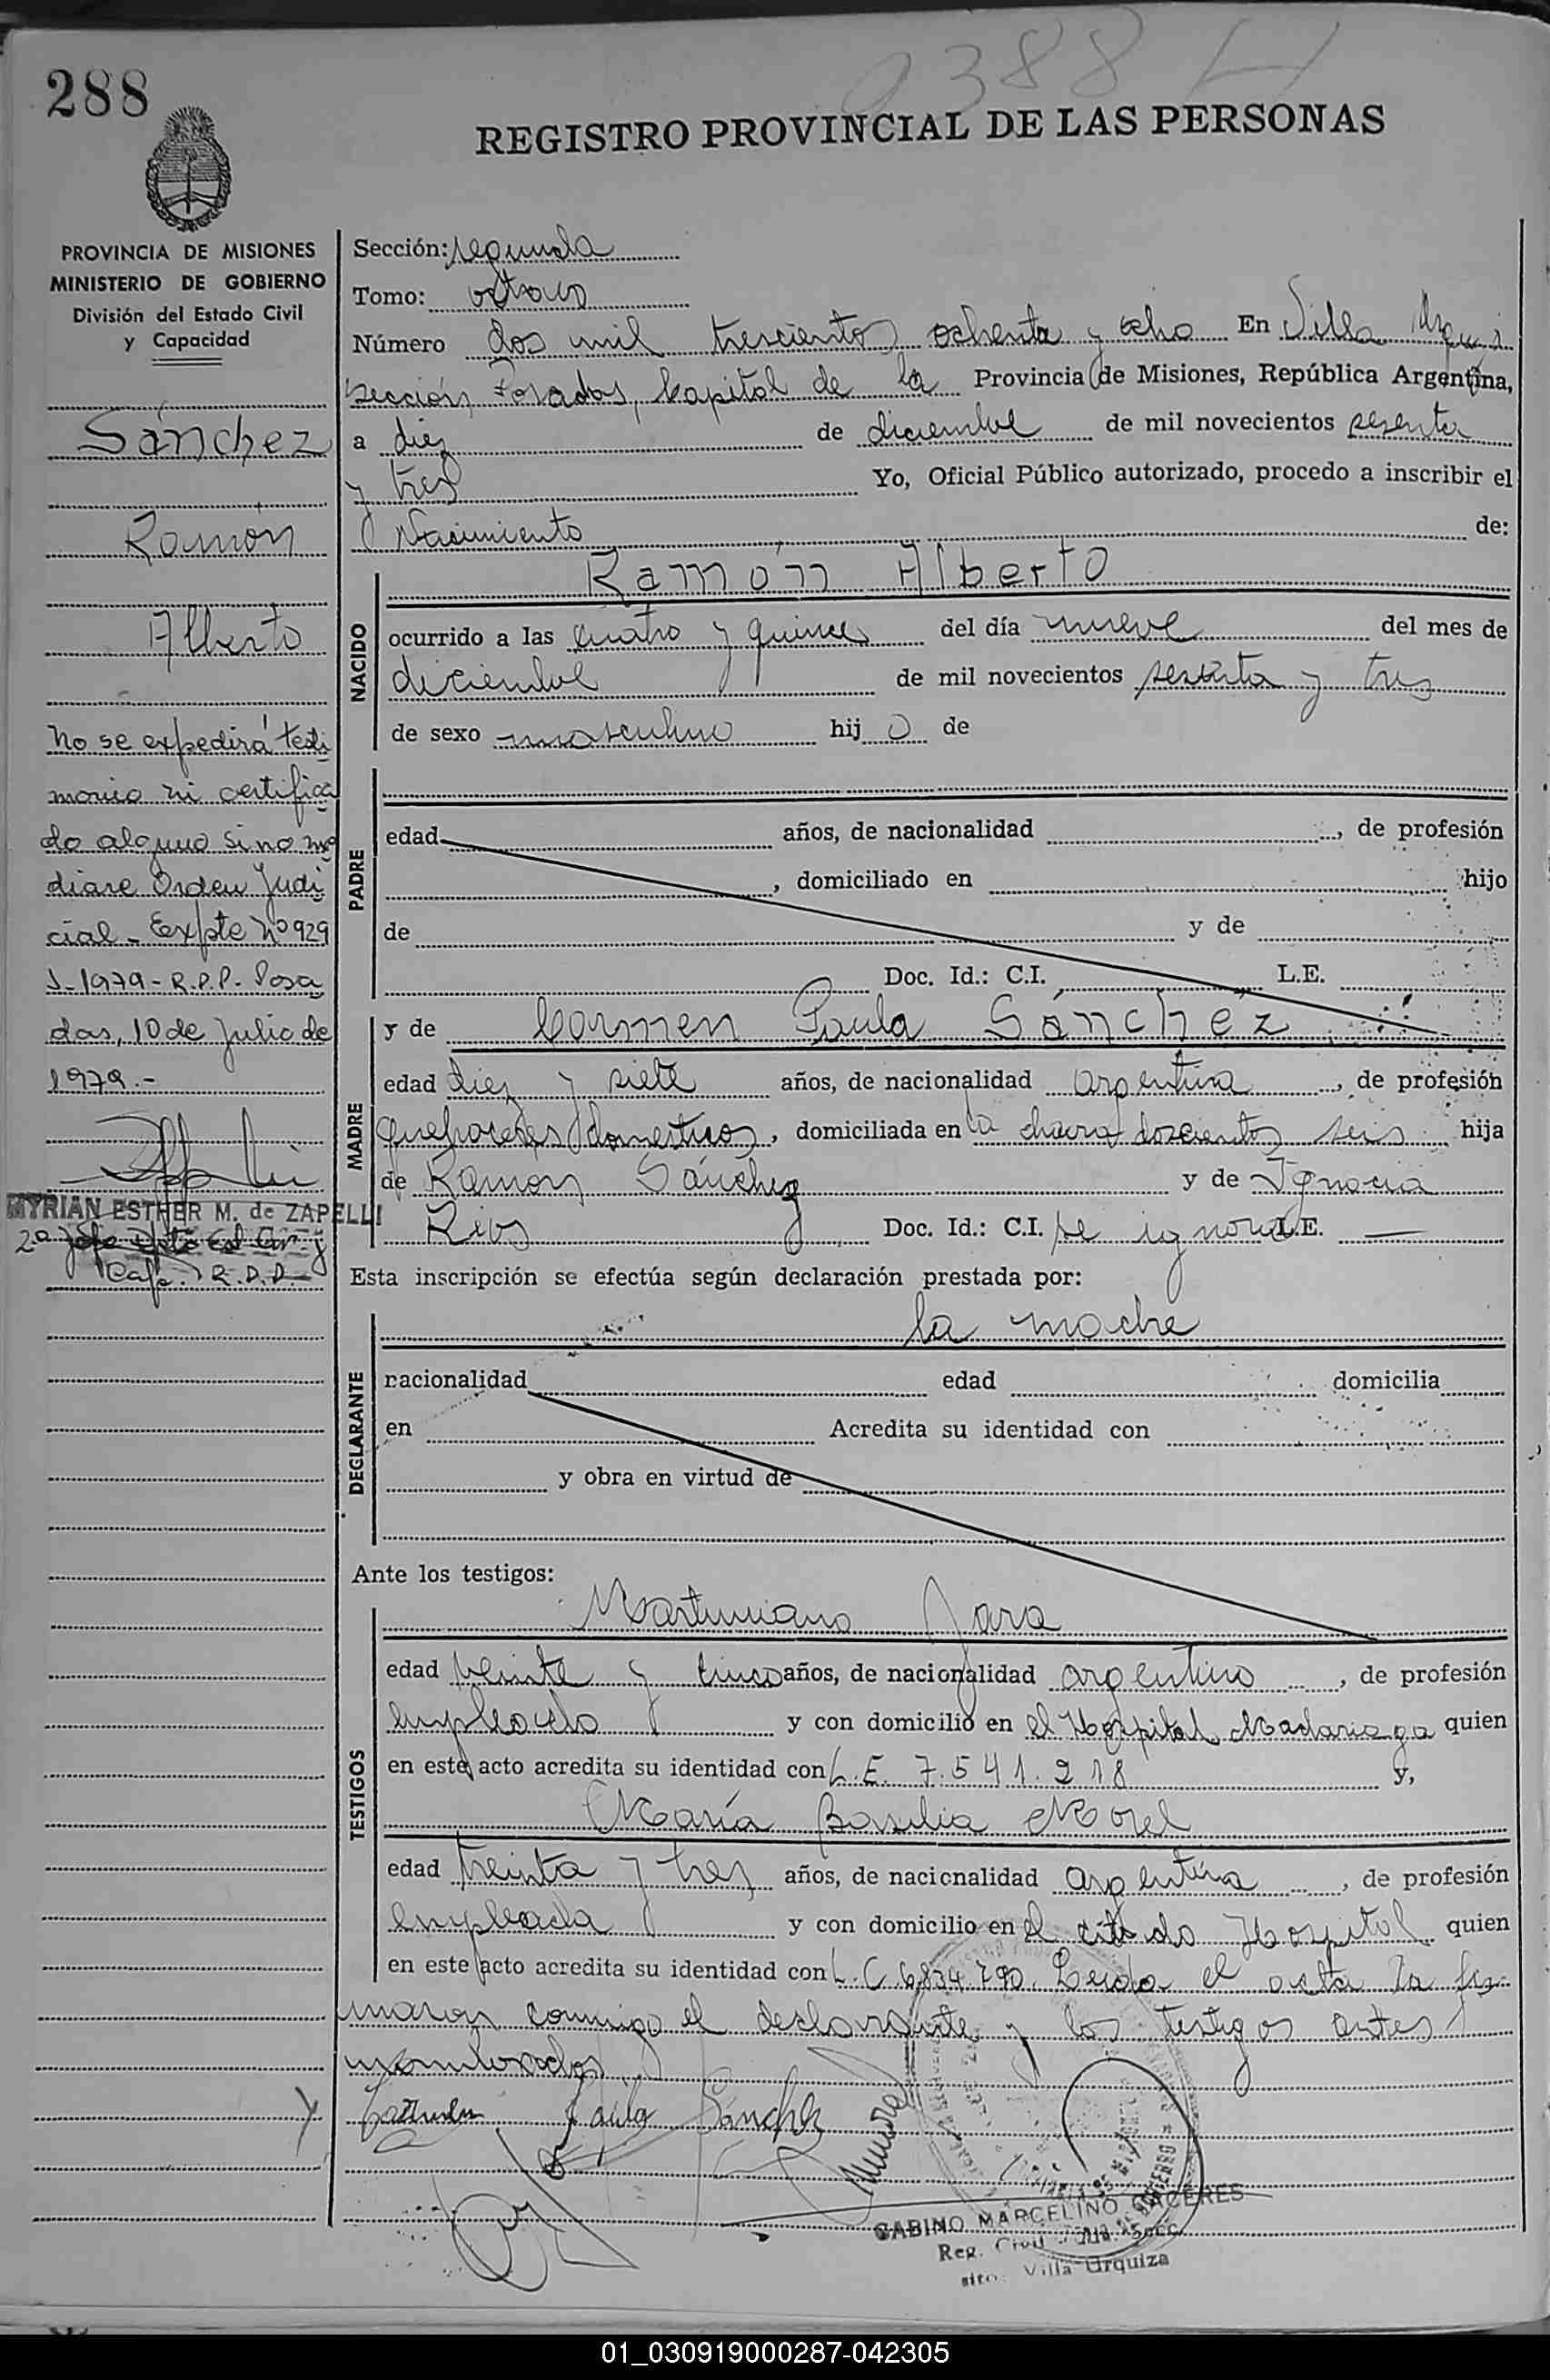 0388 H
288
REGISTRO PROVINCIAL DE LAS PERSONAS
PROVINCIA DE MISIONES
MINISTERIO DE GOBIERNO
División del Estado Civil
y Capacidad
Sánchez
Ramón
Alberto
No se expedirá testi
monio ni certifica
do alguno si no me
diare Orden Judi
cial - Expte Nº 929
J-1979 - R.P.P. Posa
das, 10 de Julio de
1979.-
MYRIAN ESTHER M. de ZAPELLI
2ª Jefe Dpto Est Civ. y
Cap. R.P.P.
Sección: segunda
Tomo: octavo
Número dos mil trescientos ochenta y ocho En Villa Urquiza
sección, Posadas, Capital de la Provincia de Misiones, República Argentina,
a diez de diciembre de mil novecientos sesenta
y tres Yo, Oficial Público autorizado, procedo a inscribir el
Nacimiento de:
NACIDO
Ramón Alberto
ocurrido a las cuatro y quince del día nueve del mes de
diciembre de mil novecientos sesenta y tres
de sexo masculino hij o de
PADRE
edad años, de nacionalidad , de profesión
, domiciliado en hijo
de y de
Doc. Id.: C.I. L.E.
MADRE
y de Carmen Paula Sánchez
edad diez y siete años, de nacionalidad argentina , de profesión
quehaceres domesticos, domiciliada en la chacra doscientos seis hija
de Ramon Sánchez y de Ignacia
Rios Doc. Id.: C.I. se ignora L.E. —
Esta inscripción se efectúa según declaración prestada por:
DECLARANTE
la madre
nacionalidad edad domicilia
en Acredita su identidad con
y obra en virtud de
Ante los testigos:
TESTIGOS
Martiniano Jara
edad veinte y cinco años, de nacionalidad argentino , de profesión
empleado y con domicilio en el Hospital Madariaga quien
en este acto acredita su identidad con L.E. 7.541.218 y,
María Basilia Morel
edad treinta y tres años, de nacionalidad argentina , de profesión
empleada y con domicilio en el citado Hospital quien
en este acto acredita su identidad con L.C 6,834.790. Leida el acta la fir
maron conmigo el declarante y los testigos antes
nombrados
Carmen Paula Sánchez
GABINO MARCELINO CACERES
Reg. Civil Secc.
Villa Urquiza
01_030919000287-042305